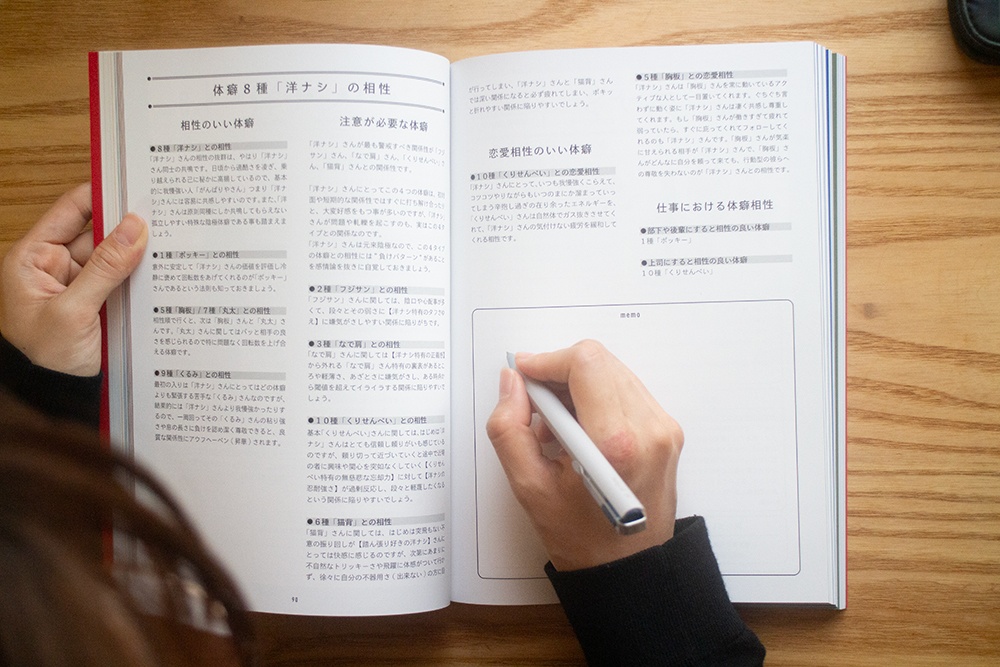 体癖8種「洋ナシ」の相性
相性のいい体癖
●8種「洋ナシ」との相性
「洋ナシ」さんの相性の抜群は、やはり「洋ナシ」
さん同士の共鳴です。日頃から過酷さを凌ぎ、乗
り越えられる己に秘かに高揚しているので、基本
的に我慢強い人「がんばりやさん」つまり「洋ナ
シ」さんには容易に共感しやすいのです。また、「洋ナ
シ」さんは原則同種にしか共鳴してもらえない
孤立しやすい特殊な陰極体癖である事も踏まえま
しょう。
●1種「ポッキー」との相性
意外に安定して「洋ナシ」さんの価値を評価し冷
静に褒めて回転数をあげてくれるのが「ポッキー」
さんであるという法則も知っておきましょう。
●5種「胸板」/7種「丸太」との相性
相性順で行くと、次は「胸板」さんと「丸太」さ
んです。「丸太」さんに関してはパッと相手の良
さを感じられるので特に問題なく回転数を上げ合
える体癖です。
●9種「くるみ」との相性
最初の入りは「洋ナシ」さんにとってはどの体癖
よりも緊張する苦手な「くるみ」さんなのですが、
結果的には「洋ナシ」さんより我慢強かったりす
るので、一周回ってその「くるみ」さんの粘り強
さや息の長さに負けを認め潔く尊敬できると、良
質な関係性にアウフヘーベン(昇華)されます。
注意が必要な体癖
「洋ナシ」さんが最も警戒すべき関係性が「フジ
サン」さん、「なで肩」さん、「くりせんべい」さ
ん、「猫背」さんとの関係性です。
「洋ナシ」さんにとってこの4つの体癖は、初対
面や短期的な関係性ではすぐに打ち解け合ったり
と、大変好感をもつ事が多いのですが、「洋ナシ」
さんが問題や軋轢を起こすのも、実はこの4タ
イプとの関係なのです。
「洋ナシ」さんは元来陰極なので、この4タイプ
の体癖との相性には“負けパターン”があること
を感情論を抜きに自覚しておきましょう。
●2種「フジサン」との相性
「フジサン」さんに関しては、陰口や心の仮面が
くて、段々とその弱さに【洋ナシ特有のタフさゆ
え】に嫌気がさしやすい関係に陥りがちです。
●3種「なで肩」との相性
「なで肩」さんに関しては【洋ナシ特有の正義性】
から外れる「なで肩」さん特有の裏表があるとこ
ろや軽薄さ、あざとさに嫌気がさし、ある時点か
ら閾値を超えてイライラする関係に陥りやすいで
しょう。
●10種「くりせんべい」との相性
基本「くりせんべい」さんに関しては、はじめは「洋
ナシ」さんはとても信頼し頼りがいも感じている
のですが、頼り切って近づいていくと途中で
の者に興味や関心を突如なくしていく【くりせん
べい特有の無慈悲な忘却力】に対して【洋ナシの
忍耐強さ】が過剰反応し、段々と軽蔑したくなる
という関係に陥りやすいでしょう。
●6種「猫背」との相性
「猫背」さんに関しては、はじめは突発もない不
意の振り回しが【踏ん張り好きの洋ナシ】さんに
とっては快感に感じるのですが、次第にあまりに
不自然なトリッキーさや飛躍に体感がついて行か
ず、徐々に自分の不器用さ(出来ない)の方に目
90
が行ってしまい、「洋ナシ」さんと「猫背」さん
では深い関係になると必ず疲れてしまい、ポキッ
と折れやすい関係に陥りやすいでしょう。
恋愛相性のいい体癖
●10種「くりせんべい」との恋愛相性
「洋ナシ」さんにとって、いつも我慢強くこらえて、
コツコツやりながらもいつのまにか溜まっていっ
てしまう辛抱し過ぎの在り余ったエネルギーを、
「くりせんべい」さんは自然体でガス抜きさせてく
れて、「洋ナシ」さんの気付けない疲労を緩和して
くれる相性です。
●5種「胸板」との恋愛相性
「洋ナシ」さんは「胸板」さんを常に動いているアク
ティブな人として一目置いてくれます。ぐちぐち言
わずに動く姿に「洋ナシ」さんは凄く共感し尊重し
てくれます。もし「胸板」さんが動きすぎて疲れて
弱っていたら、すぐに近ってくれてフォローしてく
れるのも「洋ナシ」さんです。「胸板」さんが気楽
に甘えられる相手が「洋ナシ」さんで、「胸板」さ
んがどんなに自分を頼って来ても、行動型の彼らへ
の尊敬を失わないのが「洋ナシ」さんとの相性です。
仕事における体癖相性
●部下や後輩にすると相性の良い体癖
1種「ポッキー」
●上司にすると相性の良い体癖
10種「くりせんべい」
memo